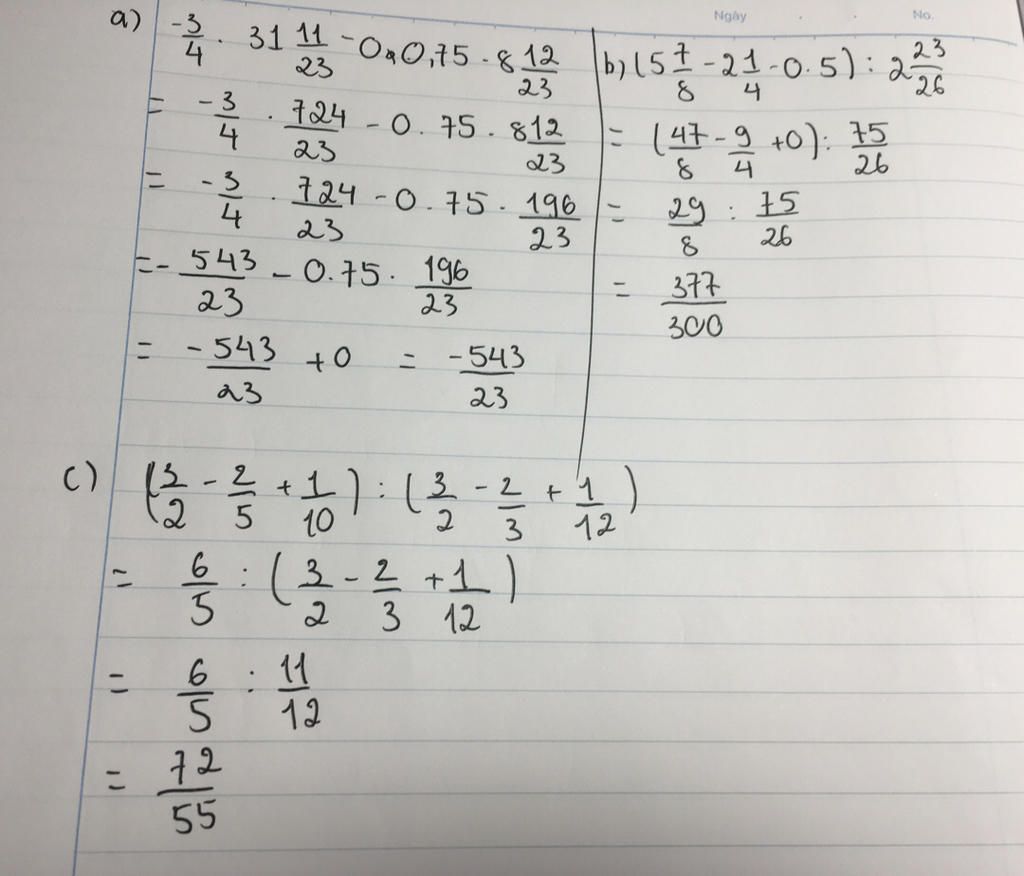 Ngày . . No.
a) -3/4 . 31 11/23 - 0,75 . 8 12/23
= -3/4 . 724/23 - 0.75 . 8 12/23
= -3/4 . 724/23 - 0.75 . 196/23
= - 543/23 - 0.75 . 196/23
= -543/23 + 0 = -543/23
b) (5 7/8 - 2 1/4 - 0.5) : 2 23/26
= (47/8 - 9/4 + 0) : 75/26
= 29/8 : 75/26
= 377/300
c) (3/2 - 2/5 + 1/10) : (3/2 - 2/3 + 1/12)
= 6/5 : (3/2 - 2/3 + 1/12)
= 6/5 : 11/12
= 72/55